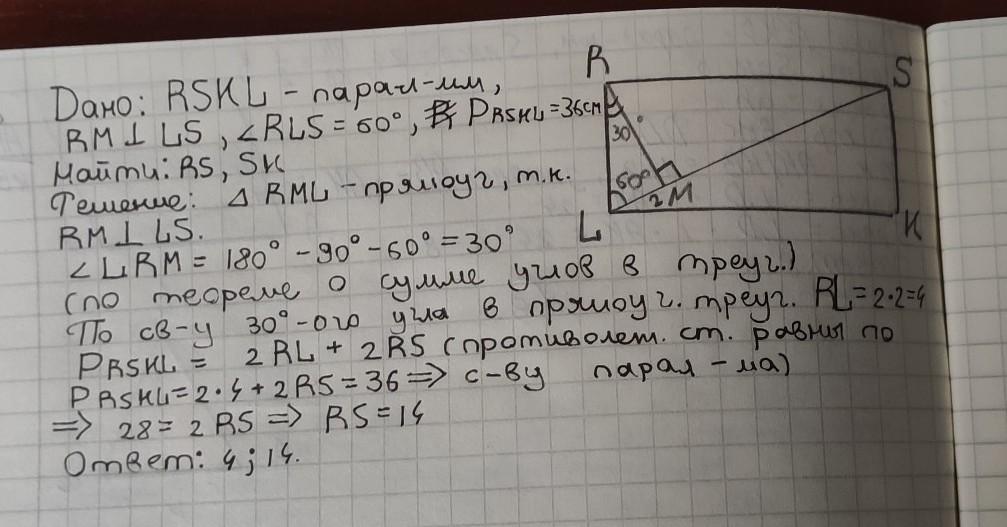 Дано: RSKL - парал-мм,
RM⊥LS, ∠RLS = 60°, PRSKL = 36см
Найти: RS, SK
Решение: Δ RML - прямоуг, т.к.
RM ⊥ LS.
∠LRM = 180° - 90° - 60° = 30°
(по теореме о сумме углов в треуг.)
По св-у 30°-ого угла в прямоуг. треуг. RL = 2·2=4
PRSKL = 2RL + 2RS (противолеж. ст. равны по
PRSKL = 2·4 + 2RS = 36 => с-ву парал-ма)
=> 28 = 2RS => RS = 14
Ответ: 4; 14.
R
S
30°
60°
2
M
L
K